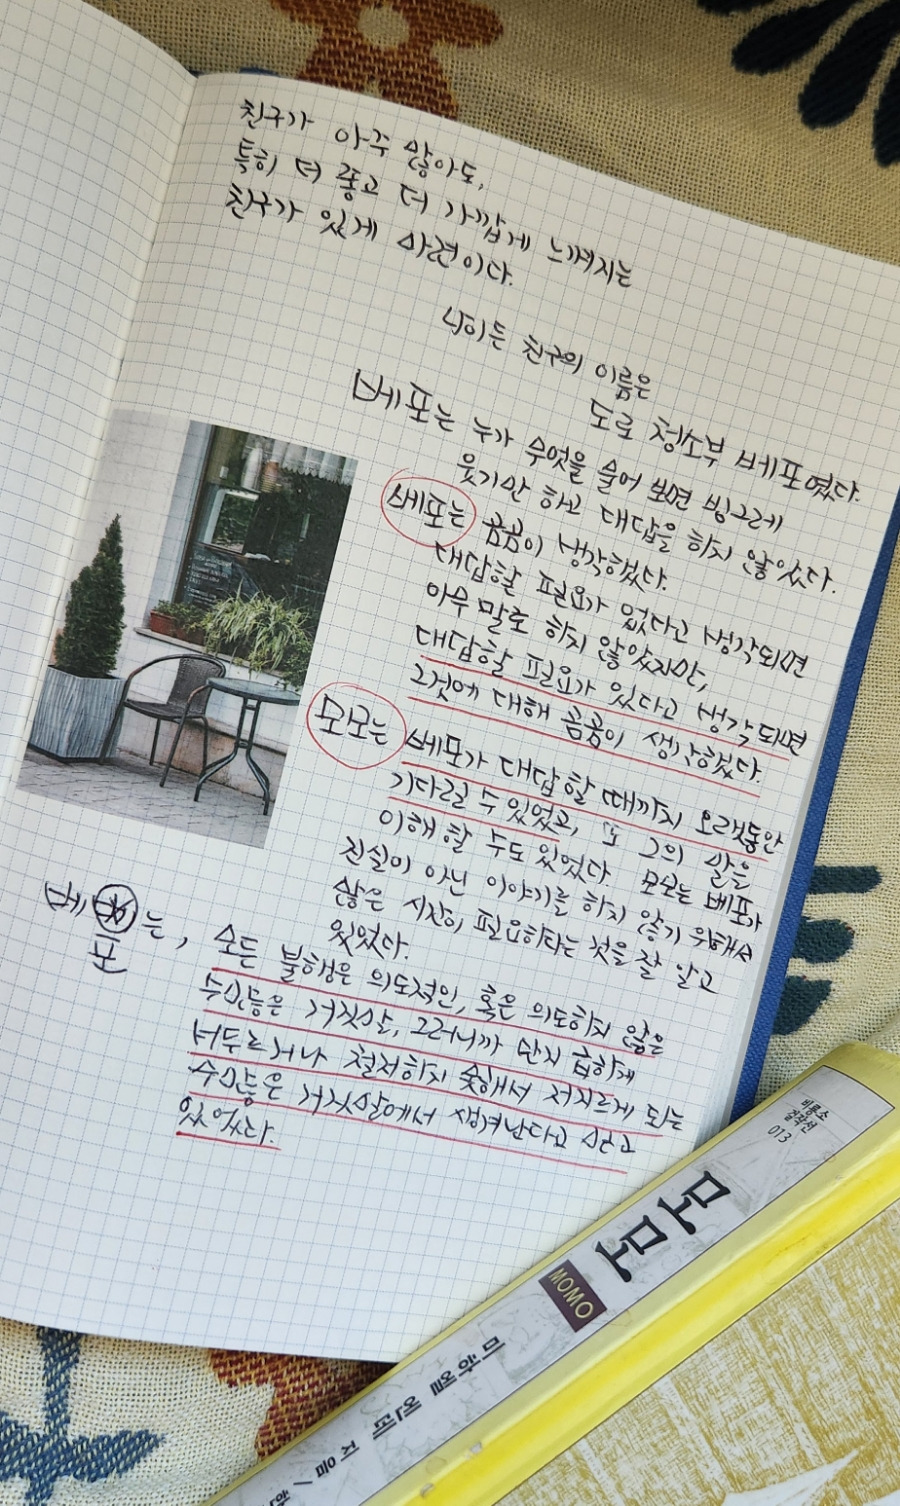 친구가 아주 많아도,
특히 더 좋고 더 가깝게 느껴지는
친구가 있게 마련이다.
나이든 친구의 이름은
도로 청소부 베포였다.
베포는 누가 무엇을 물어 보면 빙그레
웃기만 하고 대답을 하지 않았다.
베포는 곰곰이 생각했다.
대답할 필요가 없다고 생각되면
아무 말도 하지 않았지만,
대답할 필요가 있다고 생각되면
그것에 대해 곰곰이 생각하였다.
모모는 베포가 대답할 때까지 오랫동안
기다릴 수 있었고, 또 그의 말을
이해 할 수도 있었다. 모모는 베포가
진실이 아닌 이야기를 하지 않기 위해서
많은 시간이 필요하다는 것을 잘 알고
있었다.
베포는, 모든 불행은 의도적인, 혹은 의도하지 않은
수많은 거짓말, 그러니까 단지 급하게
서두르거나 철저하지 못해서 저지르게 되는
수많은 거짓말에서 생겨난다고 믿고
있었다.
비룡소
걸작선
013
모모
MOMO
미하엘 엔데 지음